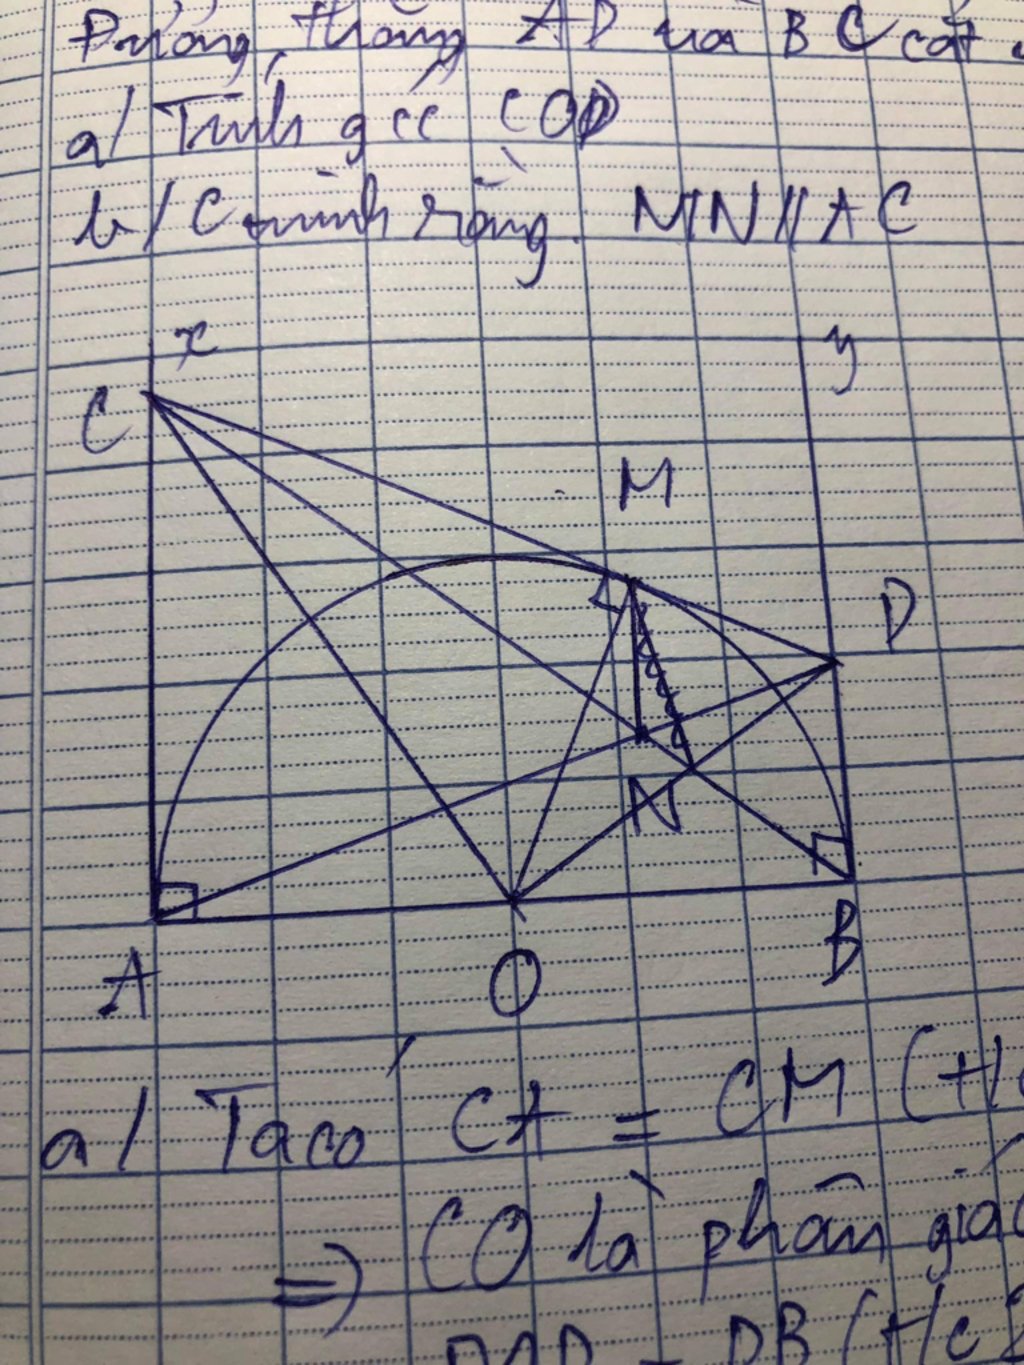 Đường thẳng AD và BC cắt
a/ Tính góc COD
b/ C minh rằng. MN // AC
x y
C
M
D
N
A O B
a/ Ta có CA = CM (t/c
=> CO là phân giác
DB (t/c 2